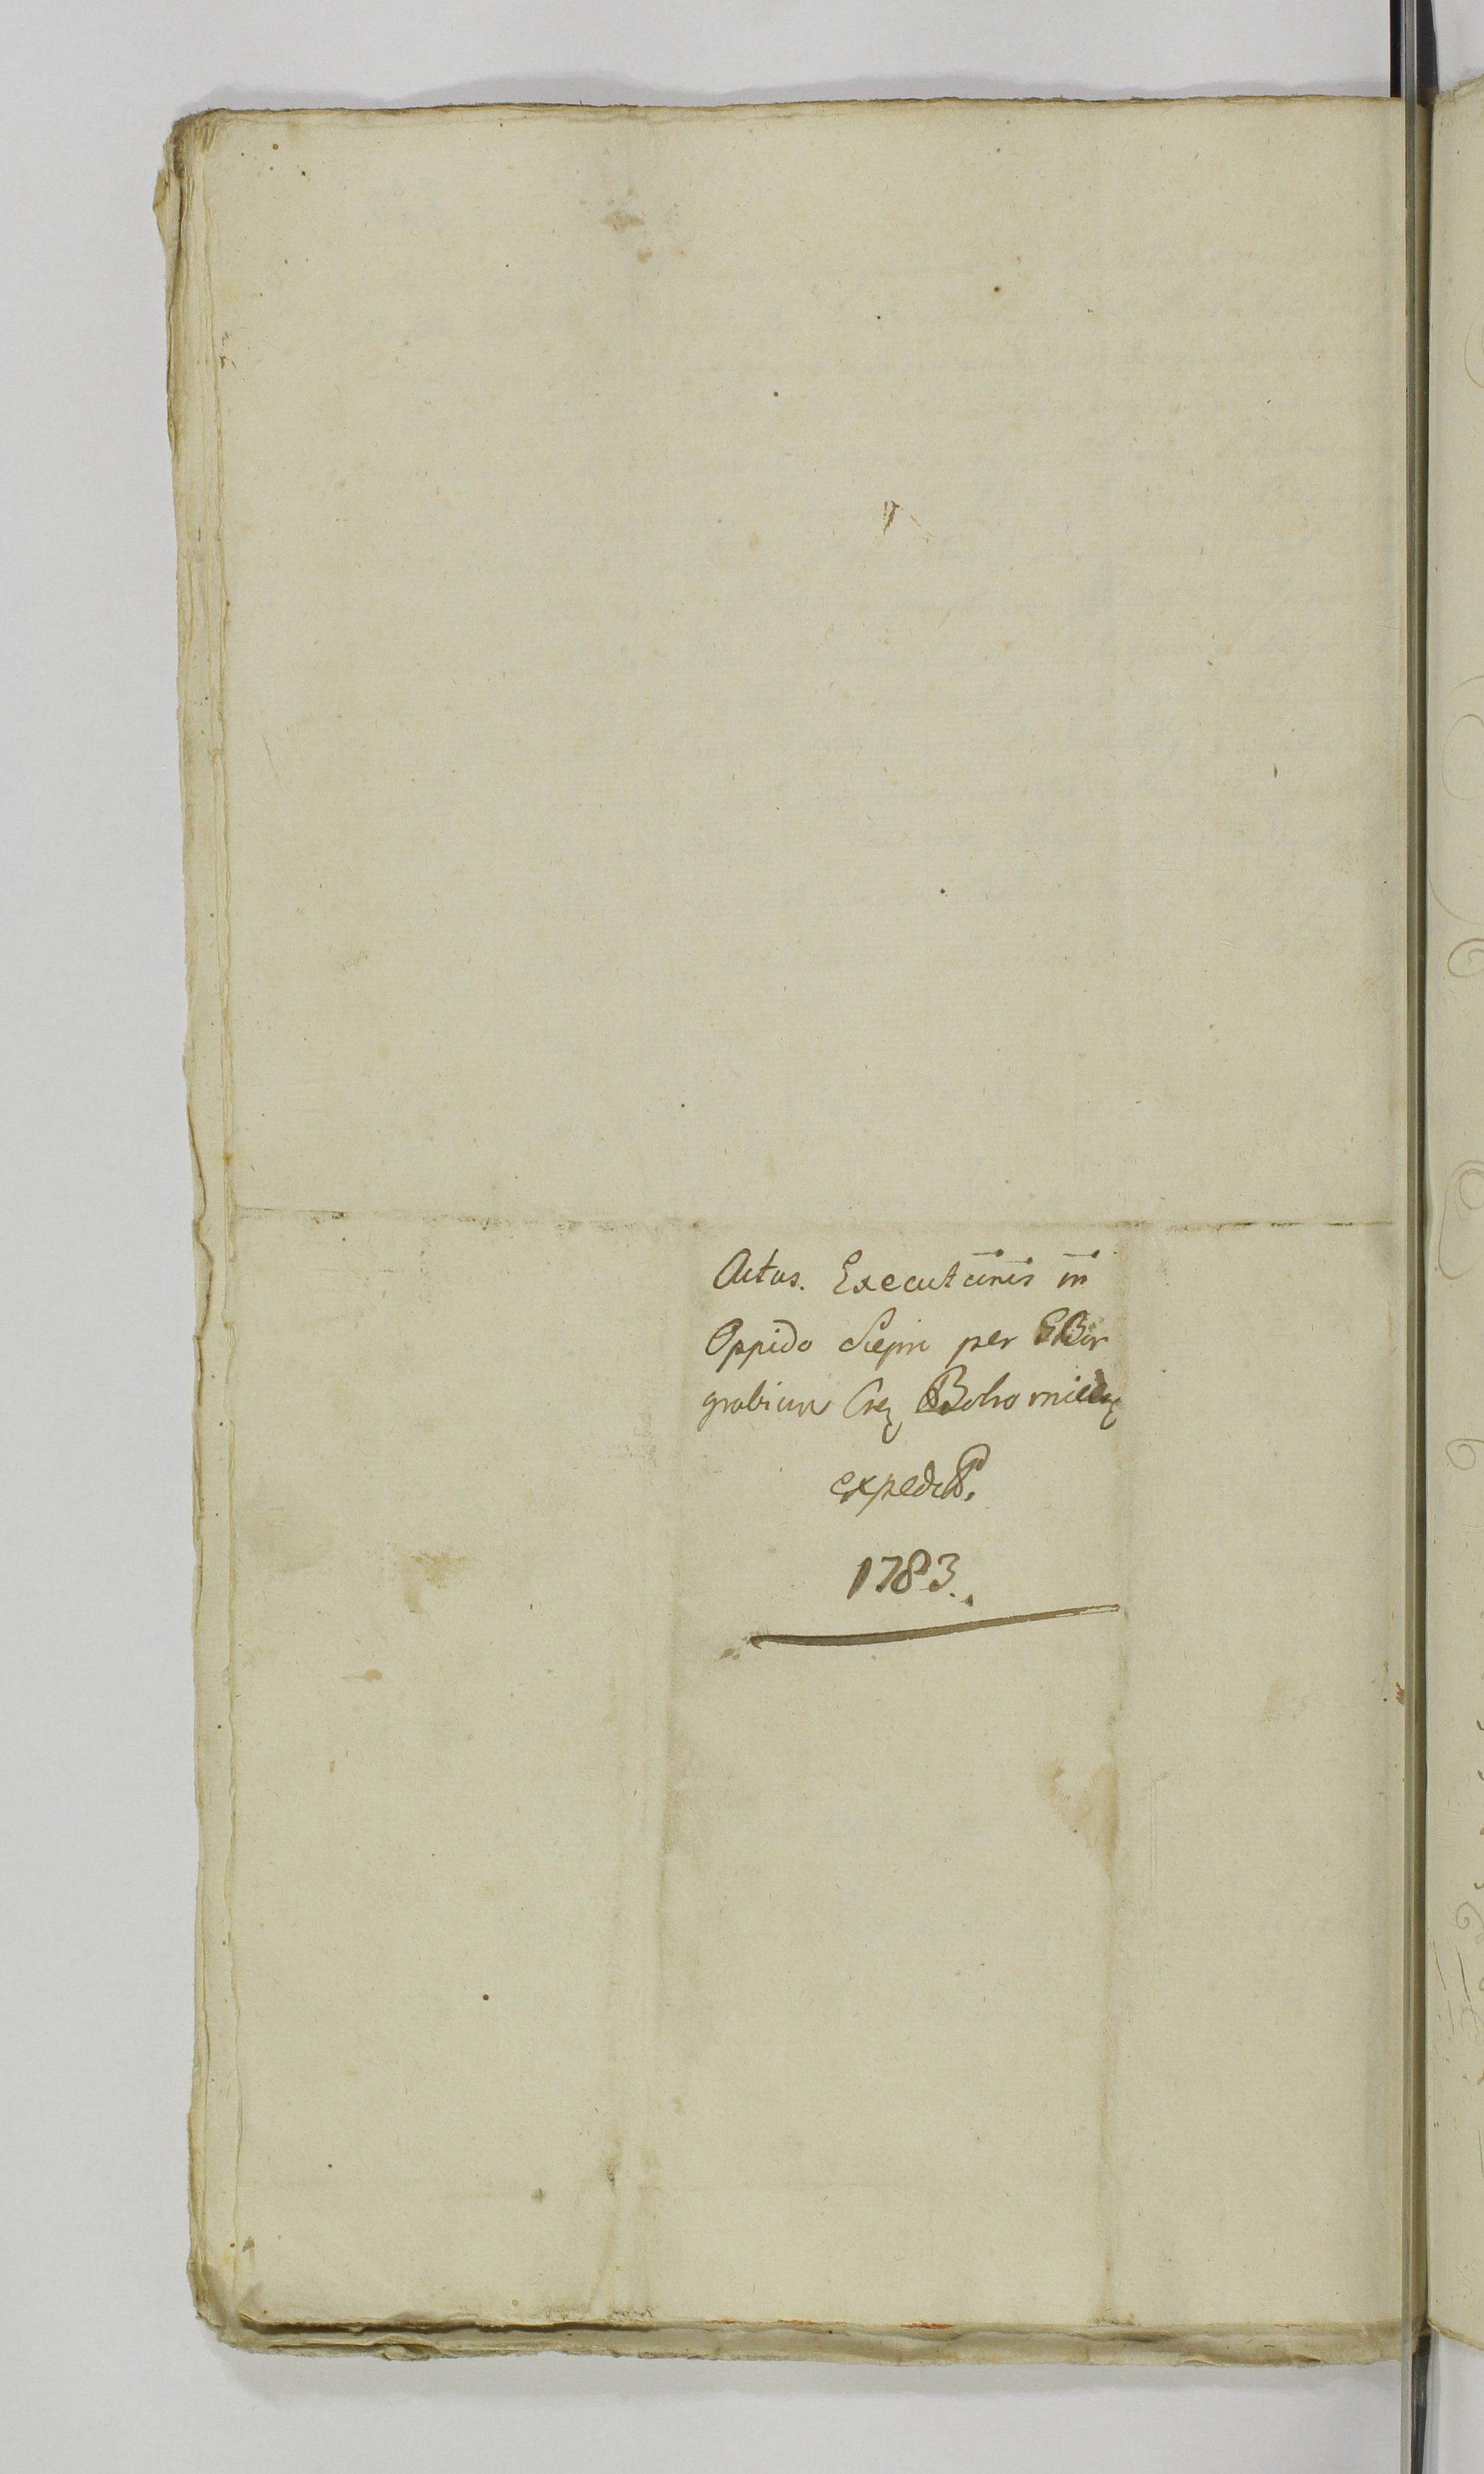 Actus. Executionis in
Oppido Siepin per GBur
grabium Crz Bobromiłdz
expedit.
1783.